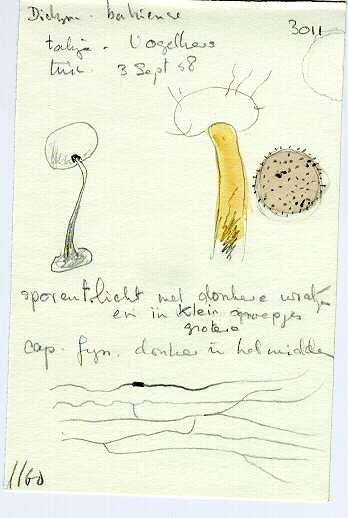 Didym. bahiense
3011
takje - Vogelhers
tuin. 3 Sept 68
sporen licht met donkere wrat-
en in klein groepjes
grotere
cap. fyn. donker in het midden
1160